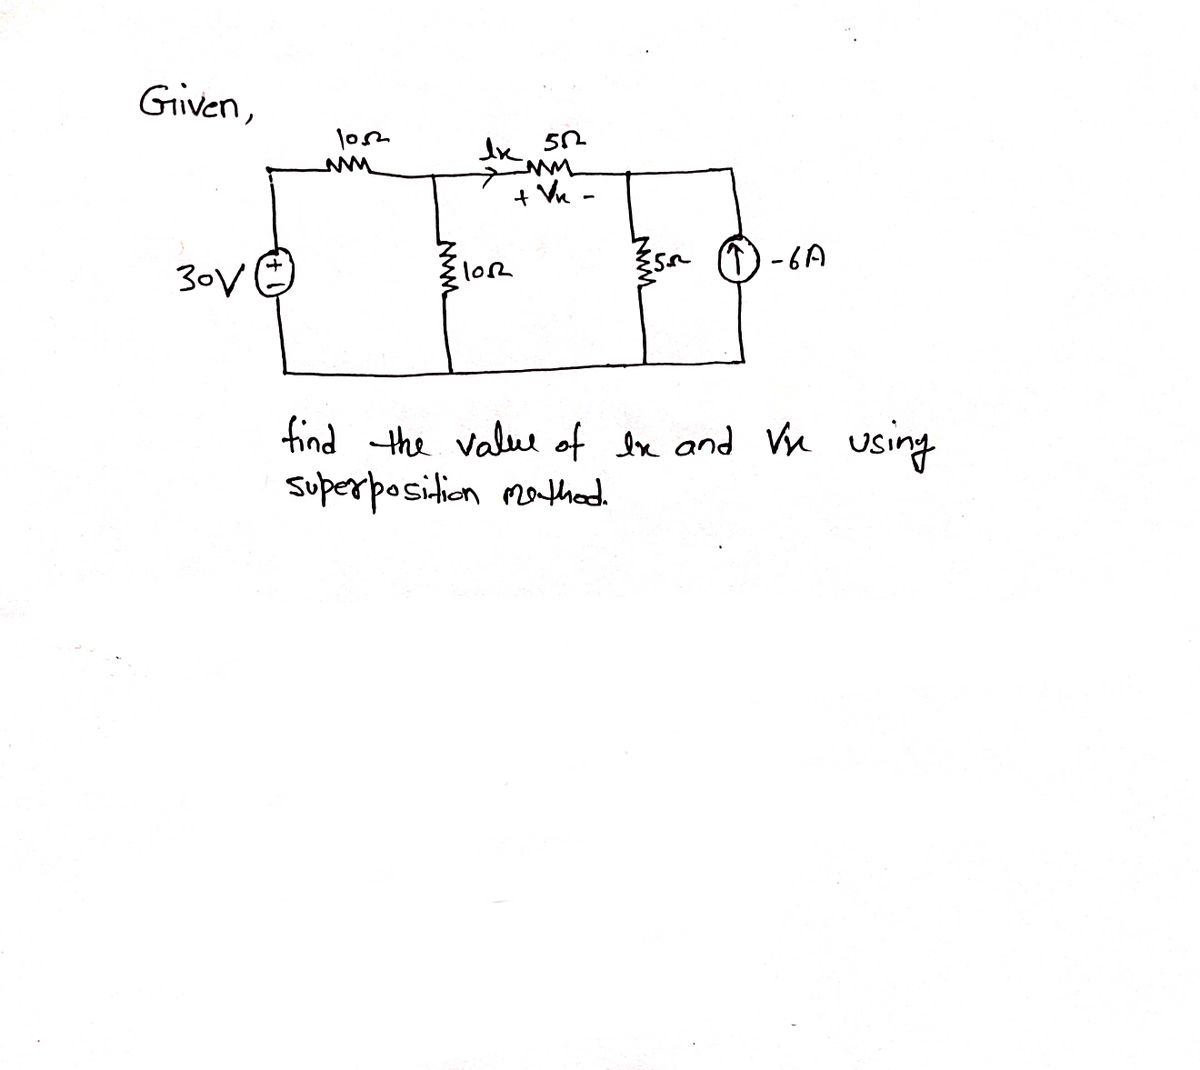 Given,
10Ω
Ix 5Ω
+ Vx -
30V
+
-
10Ω
5Ω
-6A
find the value of Ix and Vx using
superposition method.